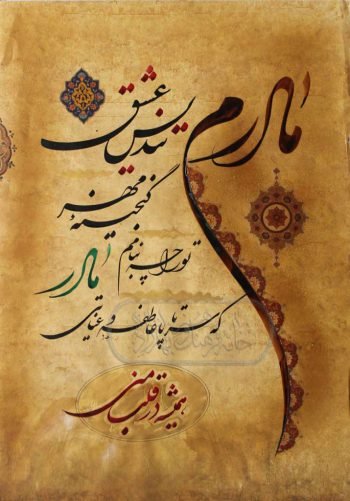 مادرم
تندیس عشق
گنجینه مهر
تو را چه بنامم
مادر
که سر تا پا عاطفه و عنایتی
همیشه در قلب منی